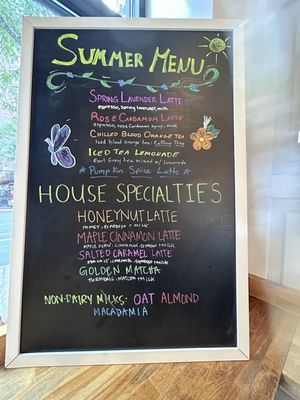 SUMMER MENU
SPRING LAVENDER LATTE
espresso, spring lavender, milk
ROSE CARDAMOM LATTE
espresso, rose cardamom syrup, milk
CHILLED BLOOD ORANGE TEA
Iced blood orange tea:
ICED TEA LEMONADE
Earl Grey tea mixed w/ lemonade
Pumpkin Spice Latte
HOUSE SPECIALTIES
HONEYNUT LATTE
HONEY, ESPRESSO + MILK
MAPLE CINNAMON LATTE
MAPLE SYRUP, CINNAMON, ESPRESSO + MILK
SALTED CARAMEL LATTE
SEA SALT, CARAMEL, ESPRESSO + MILK
GOLDEN MATCHA
TURMERIC, MATCHA + MILK
NON-DAIRY MILKS: OAT ALMOND
MACADAMIA